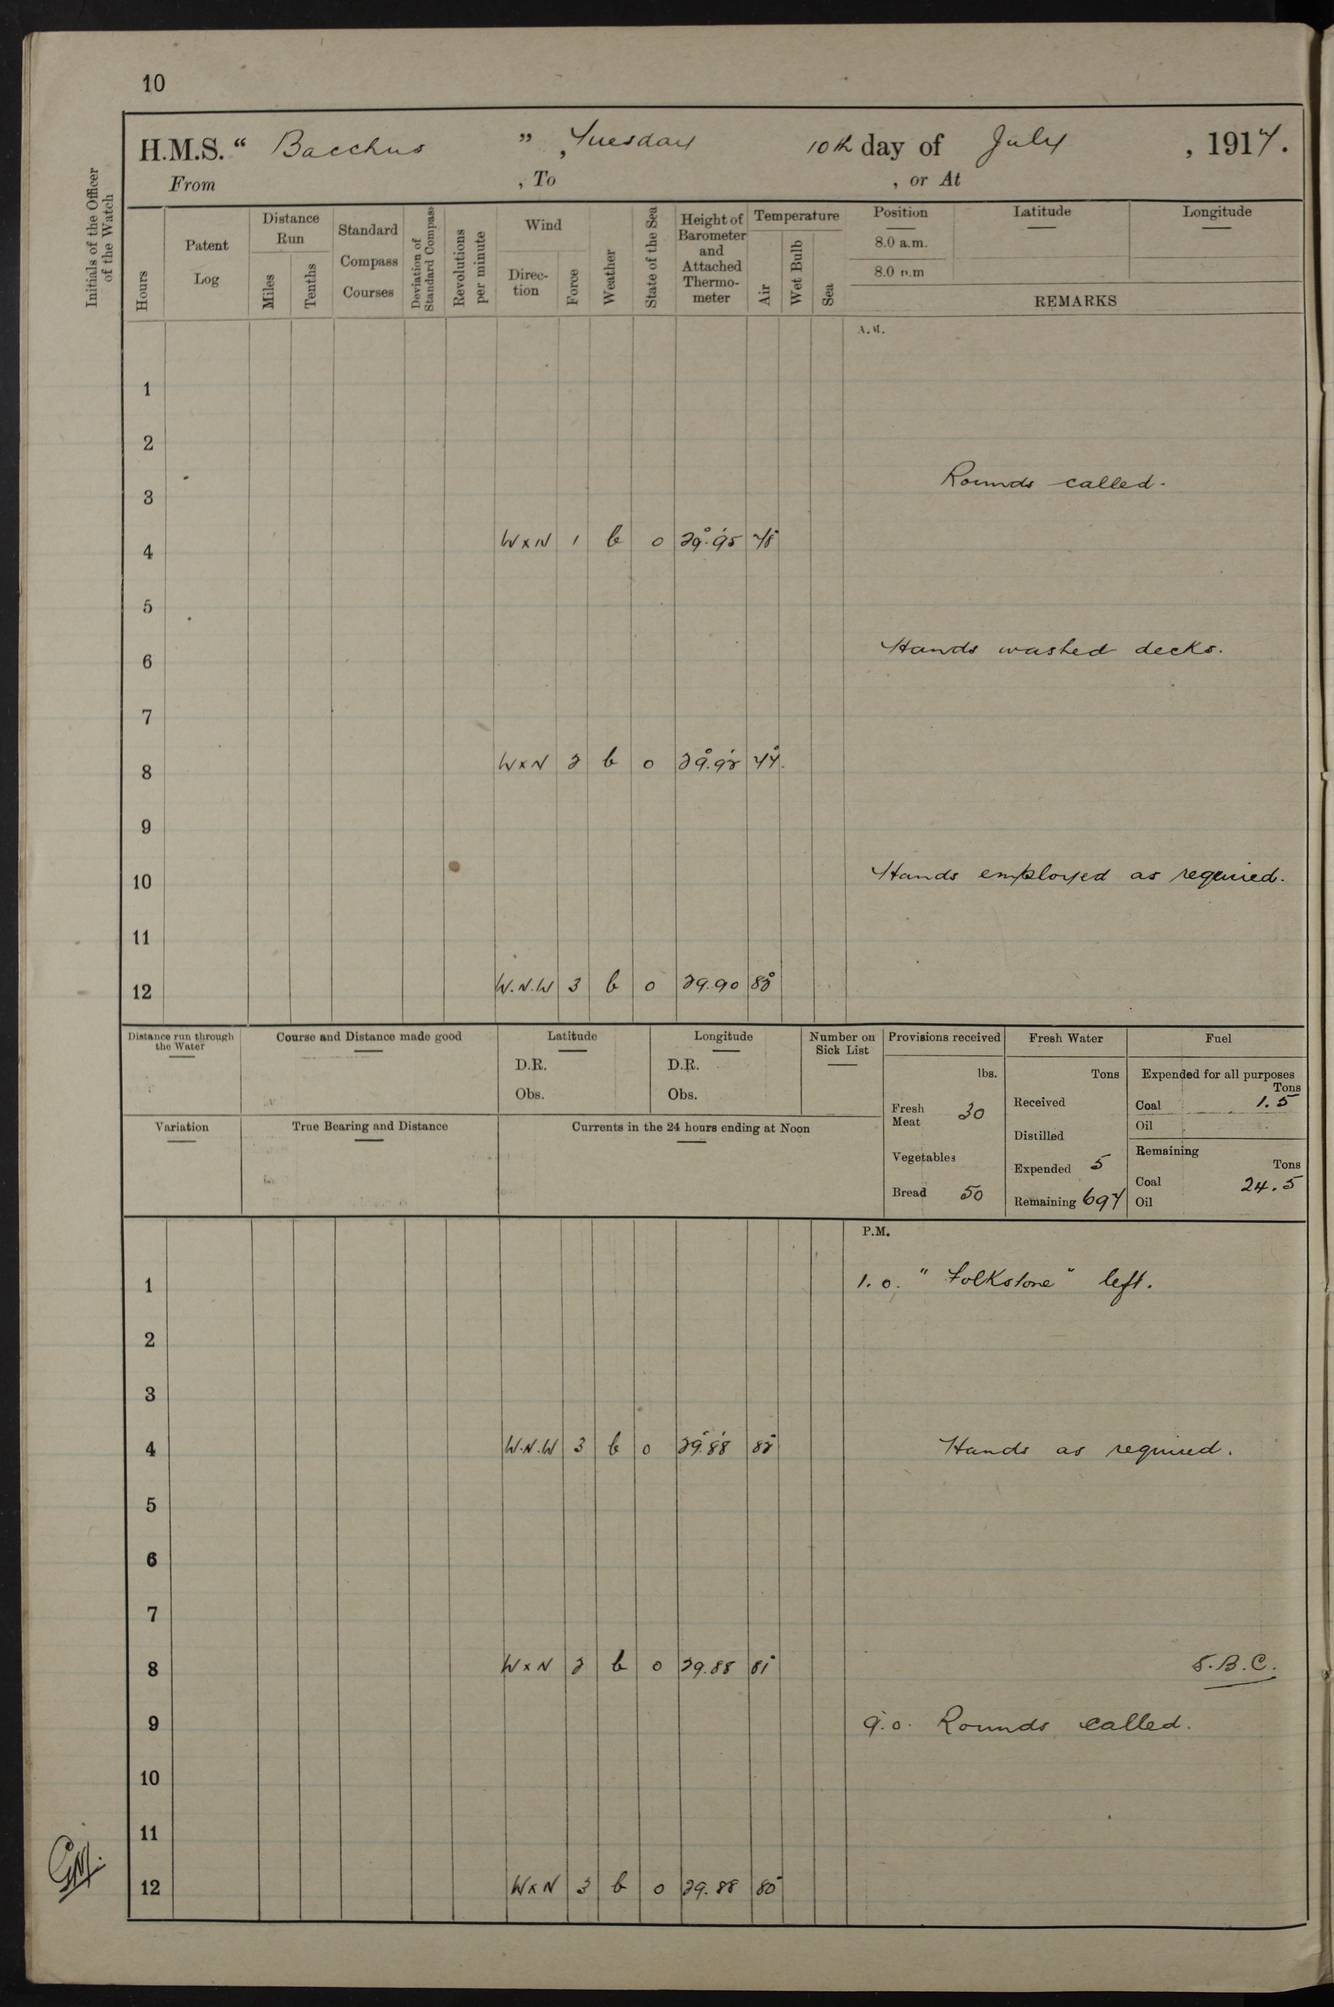 10
H.M.S. “ Bacchus ” , Tuesday 10th day of July , 1917.
From , To , or At
Initials of the Officer of the Watch
Hours
Patent Log
Distance Run
Miles
Tenths
Standard Compass Courses
Deviation of Standard Compass
Revolutions per minute
Wind
Direction
Force
Weather
State of the Sea
Height of Barometer and Attached Thermometer
Temperature
Air
Wet Bulb
Sea
Position
8.0 a.m.
8.0 p.m
Latitude
Longitude
REMARKS
A.M.
1
2
3 Rounds called.
4 W x N 1 b 0 29.95
5
6 Hands washed decks.
7
8 W x N 2 b 0 77
9
10 Hands employed as required.
11
12 W.N.W 3 b 0 29.90 82
Distance run through the Water
Course and Distance made good
Latitude
D.R.
Obs.
Longitude
D.R.
Obs.
Number on Sick List
Provisions received
lbs.
Fresh Meat 30
Vegetables
Bread 50
Fresh Water
Tons
Received
Distilled
Expended 5
Remaining 697
Fuel
Expended for all purposes
Tons
Coal 1.5
Oil
Remaining
Tons
Coal 24.5
Oil
Variation
True Bearing and Distance
Currents in the 24 hours ending at Noon
P.M.
1 1.0. "Folkstone" left.
2
3
4 W.N.W 3 b 0 29.88 82 Hands as required.
5
6
7
8 W x N 2 b 0 29.88 81 S.B.C.
9 9.0. Rounds called.
10
11
12 W x N 3 b 0 29.88 80